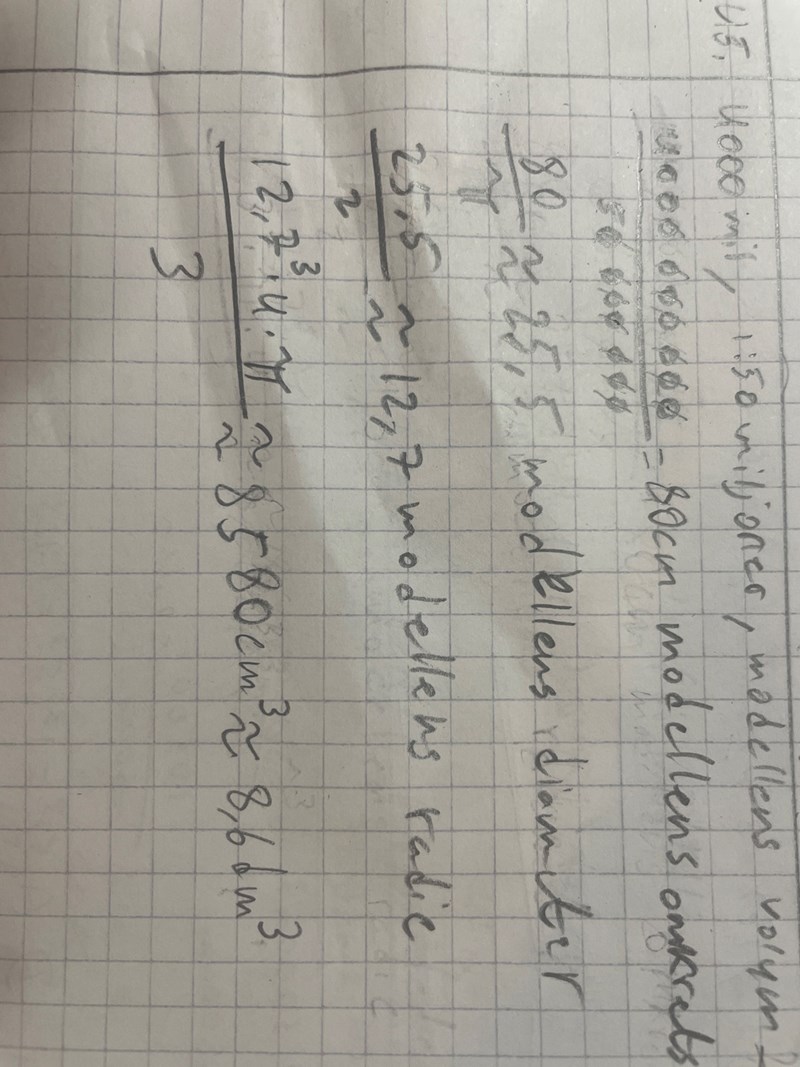 45. 4000 mil, 1:50 miljoner, modellens volym?
4000 000 000 = 80cm modellens omkrets
50 000 000
80 ≈ 25,5 modellens diameter
π
25,5 ≈ 12,7 modellens radie
2
12,7³·4·π ≈ 8580cm³ ≈ 8,6dm³
3